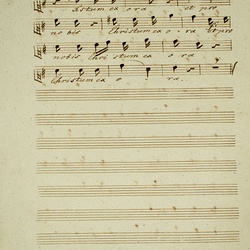 Christum ex ora et pro
nobis Christum exora et pro
nobis Christum ex ora
Christum ex o ra.